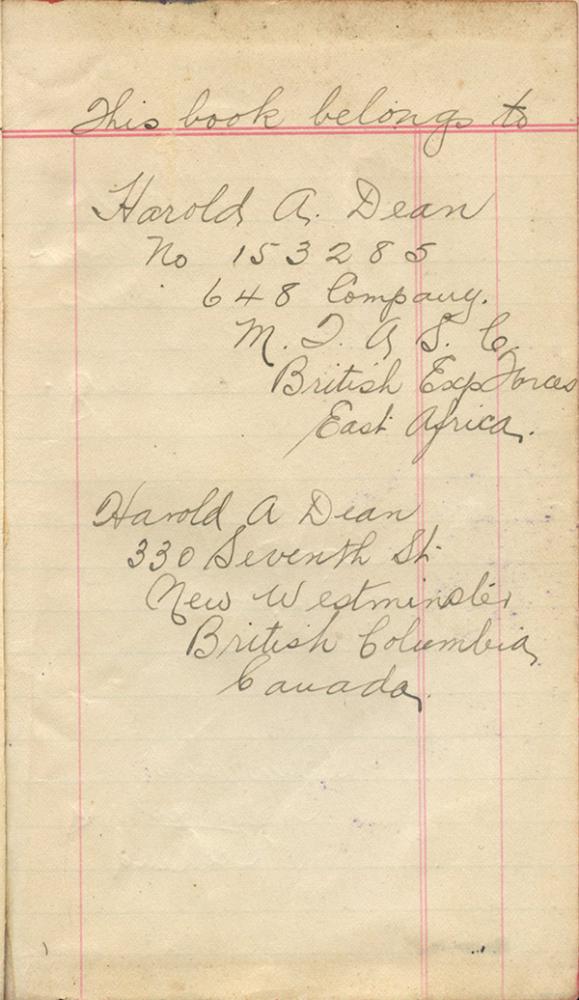 This book belongs to
Harold A. Dean
No 153285
648 Company.
M. T. A. S. C.
British Exp Forces
East Africa.
Harold A Dean
330 Seventh St.
New Westminster
British Columbia,
Canada.